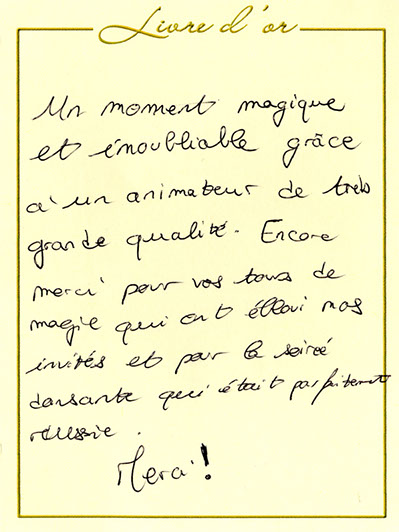 Livre d'or
Un moment magique
et inoubliable grâce
à un animateur de très
grande qualité. Encore
merci pour vos tours de
magie qui ont ébloui nos
invités et pour la soirée
dansante qui était parfaitement
réussie.
Merci !